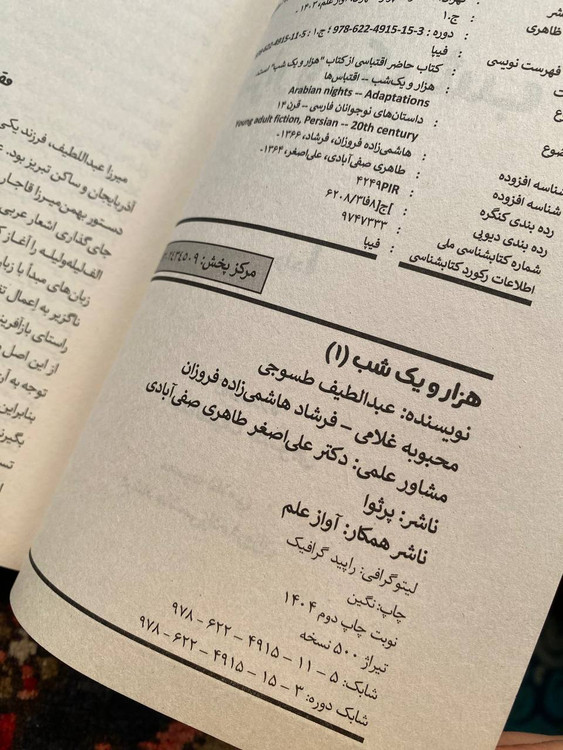 ظاهری
: ج.۱
: دوره : 3-15-4915-622-978 ؛ ج.۱ : 5-11-4915-622-978
فهرست نویسی : فیپا
: کتاب حاضر اقتباسی از کتاب "هزار و یک شب" است.
: هزار و یک‌شب -- اقتباس‌ها
Arabian nights -- Adaptations
: داستان‌های نوجوانان فارسی -- قرن ۱۴
Young adult fiction, Persian -- 20th century
شناسه افزوده : هاشمی‌زاده فروزان، فرشاد، ۱۳۶۶-
شناسه افزوده : طاهری صفی‌آبادی، علی‌اصغر، ۱۳۶۴-
رده بندی کنگره : PIR۴۲۴۹
رده بندی دیویی : [ج]۸فا۶۲۰۸/۳
شماره کتابشناسی ملی : ۹۷۴۷۳۳۳
اطلاعات رکورد کتابشناسی : فیپا
مرکز پخش:
هزار و یک شب (۱)
نویسنده: عبدالطیف طسوجی
محبوبه غلامی – فرشاد هاشمی‌زاده فروزان
مشاور علمی: دکتر علی‌اصغر طاهری صفی‌آبادی
ناشر: پرثوا
ناشر همکار: آواز علم
لیتوگرافی: راپید گرافیک
چاپ: نگین
نوبت چاپ دوم ۱۴۰۴
تیراژ ۵۰۰ نسخه
شابک: ۵ – ۱۱ – ۴۹۱۵ – ۶۲۲ – ۹۷۸
شابک دوره: ۳ – ۱۵ – ۴۹۱۵ – ۶۲۲ – ۹۷۸
میرزا عبداللطیف، فرزند یکی
آذربایجان و ساکن تبریز بود.
دستور بهمن‌میرزا قاجار
جای‌گذاری اشعار عربی
الف‌لیله‌ولیله را آغاز ک
زبان‌های مبدأ با زبا
ناگزیر به اعمال تغ
راستای بازآفرین
از این اصل
توجه به آن
بنابراین
بگیرند